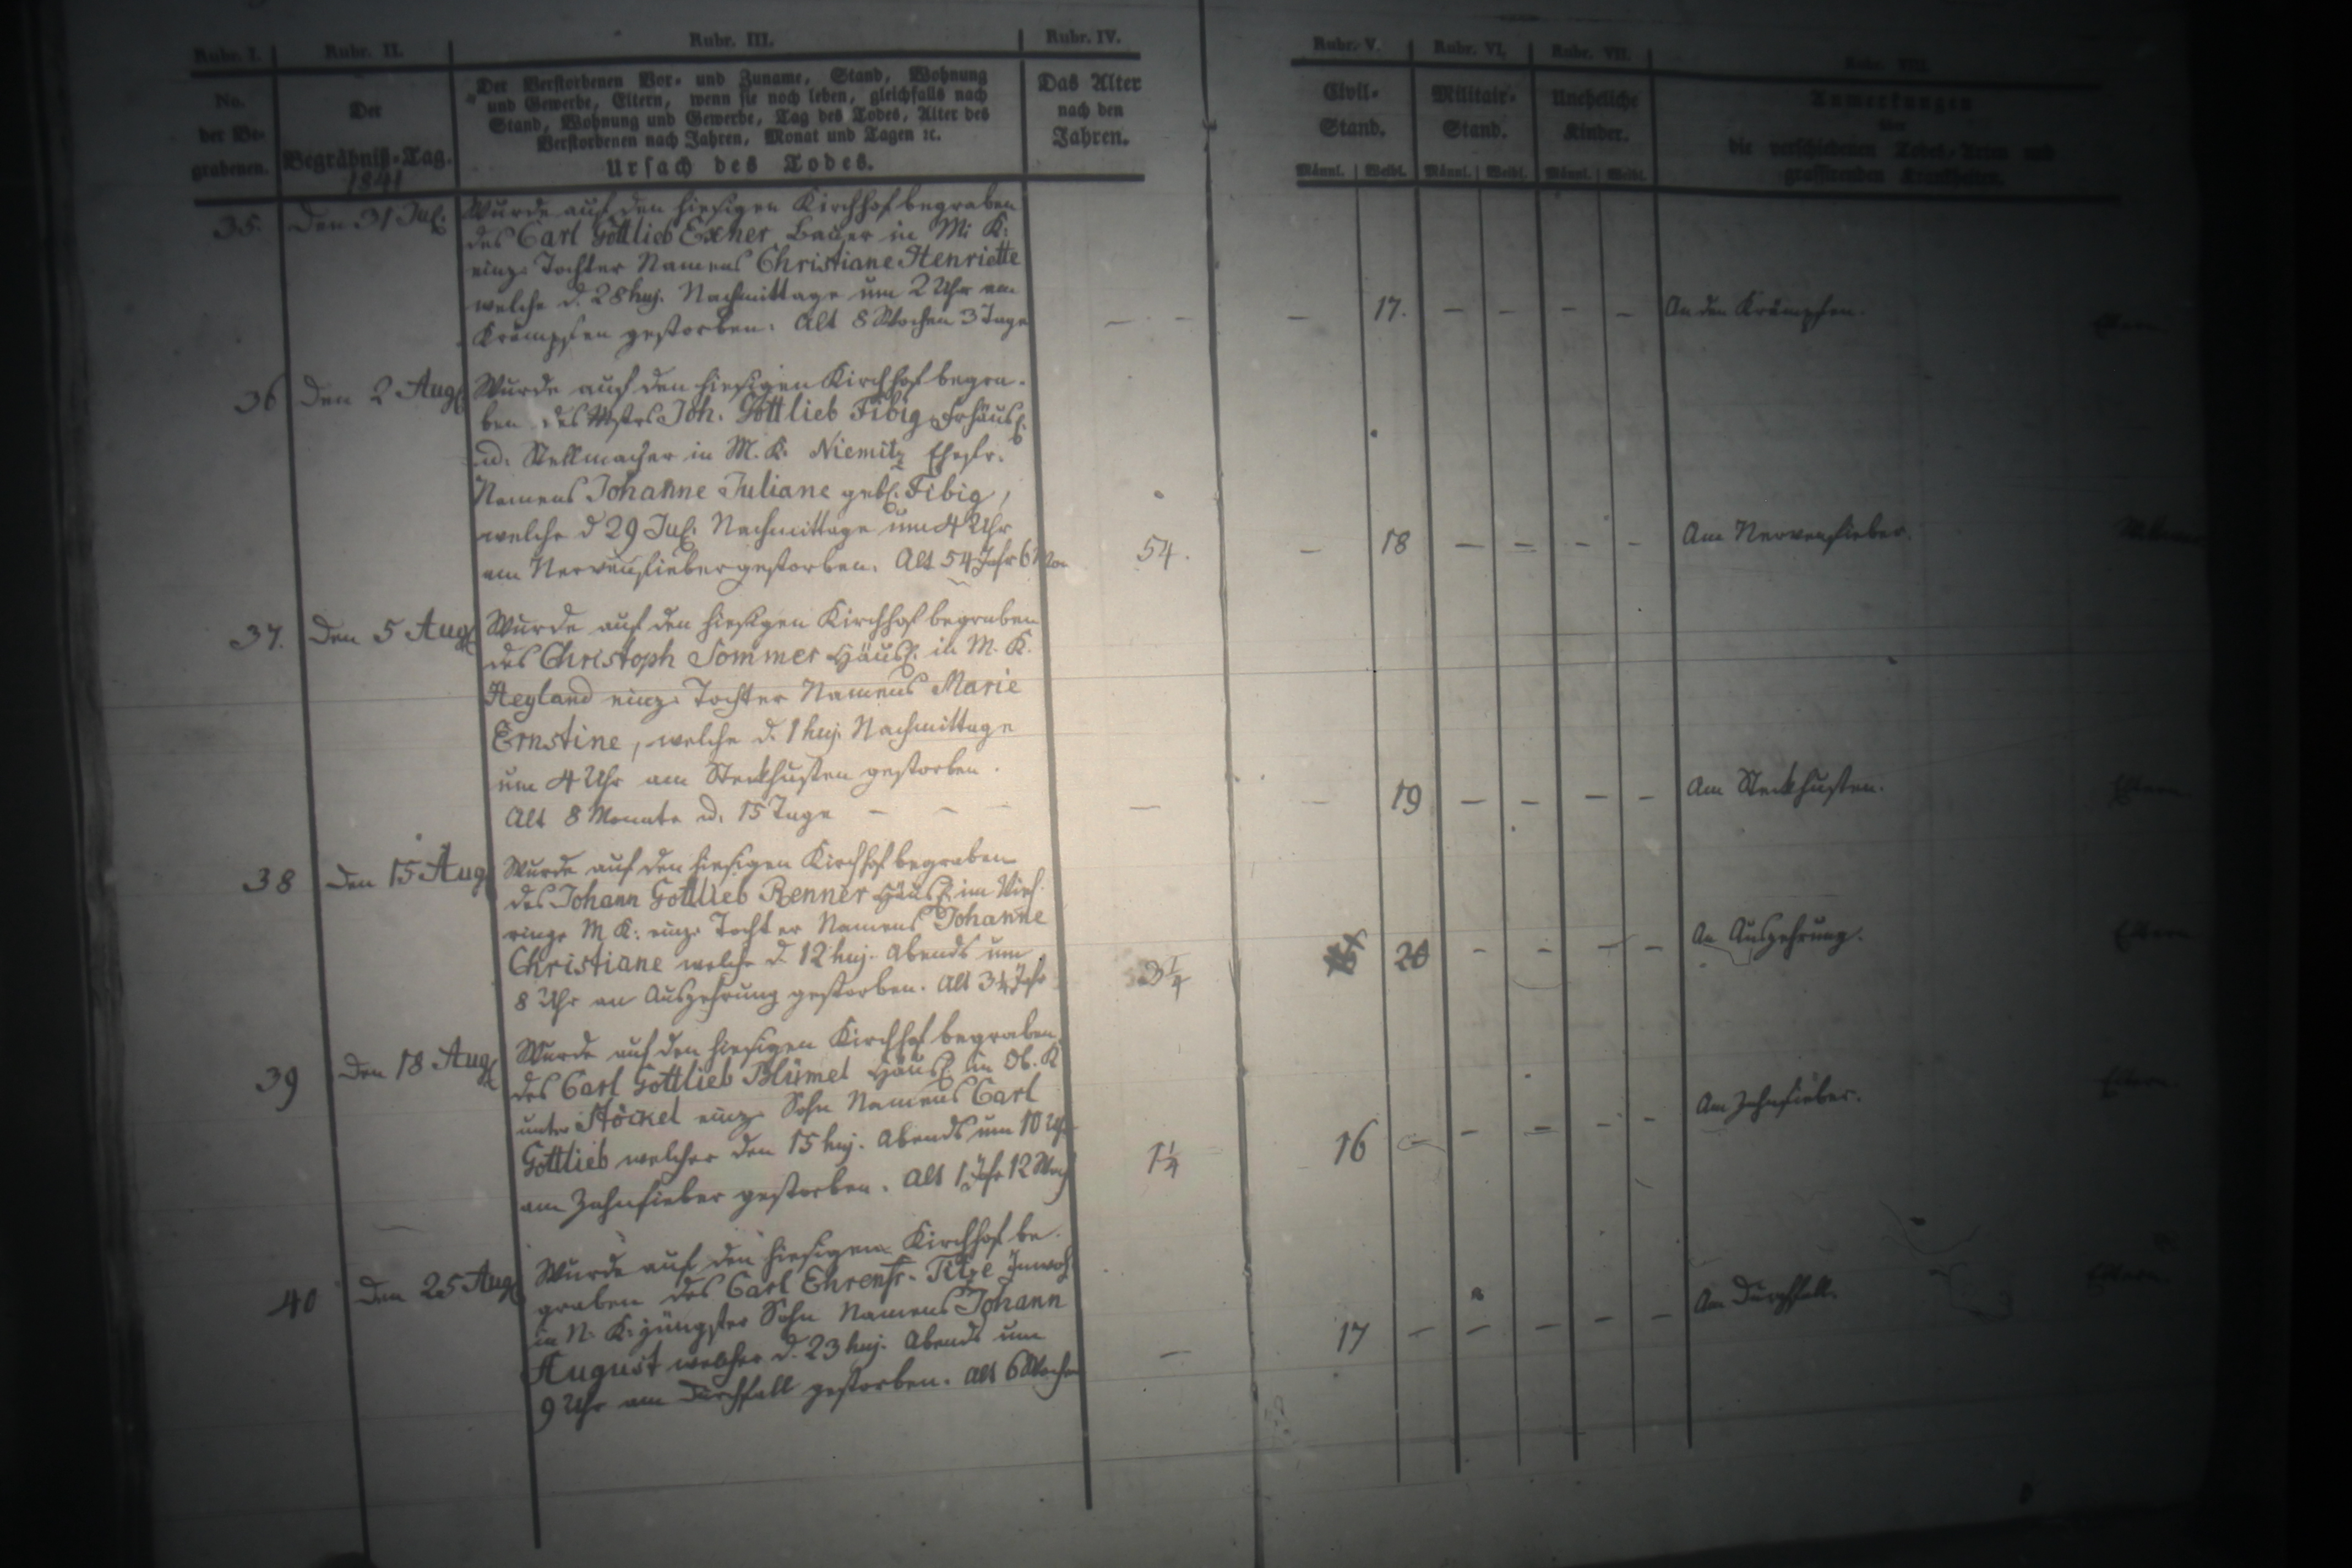 Rubr. I. Rubr. II. Rubr. III. Rubr. IV. Rubr. V. Rubr. VI. Rubr. VII. Rubr. VIII.
No. der Be- grabenen.
Der Begräbniß-Tag.
1841
Der Verstorbenen Vor- und Zuname, Stand, Wohnung
und Gewerbe, Eltern, wenn sie noch leben, gleichfalls nach
Stand, Wohnung und Gewerbe, Tag des Todes, Alter des
Verstorbenen nach Jahren, Monat und Tagen ꝛc.
Ursach des Todes.
Das Alter
nach den
Jahren.
Civil-
Stand.
Männl. Weibl.
Militair-
Stand.
Männl. Weibl.
Uneheliche
Kinder.
Männl. Weibl.
Anmerkungen
über
die verschiedenen Todes-Arten und
grassirenden Krankheiten.
35. Den 31 Jul.
Wurde auf den hiesigen Kirchhof begraben
des Carl Gottlieb Exner Bauer in M. K.
einz. Tochter Namens Christiane Henriette
welche d. 28 huj. Nachmittage um 2 Uhr am
Krämpfen gestorben. Alt 8 Wochen 3 Tage
— - — 17. — — — — An den Krämpfen.
Eltern
36 Den 2 Aug.
Wurde auf den hiesigen Kirchhof begra-
ben des Mstrs Joh. Gottlieb Fibig Frhäusl.
u. Stellmacher in M. K. Niemitz Ehefr.
Namens Johanne Juliane geb. Fibig,
welche d 29 Jul. Nachmittage um 4 Uhr
am Nervenfieber gestorben. Alt 54 Jahr 6 Mon
54. — 18 — — — — Am Nervenfieber.
37. Den 5 Aug.
Wurde auf den hiesigen Kirchhof begraben
des Christoph Sommer Häusl. in M. K.
Heyland einz. Tochter Namens Marie
Ernstine, welche d. 1 huj. Nachmittage
um 4 Uhr am Steckhusten gestorben.
Alt 8 Monate u. 15 Tage — —
— — 19 — — — — Am Steckhusten.
Eltern
38 Den 15 Aug
Wurde auf den hiesigen Kirchhof begraben
des Johann Gottlieb Renner Häusl. im Vieh-
ringe M K: einz. Tochter Namens Johanne
Christiane welche d. 12 huj. Abends um
8 Uhr an Auszehrung gestorben. Alt 3¼ Jahr
3¼ 20 - - — — An Auszehrung.
Eltern
39 Den 18 Aug
Wurde auf den hiesigen Kirchhof begraben
des Carl Gottlieb Blümel Häusl. in Ob. K
unter Stöckel einz. Sohn Namens Carl
Gottlieb welcher den 15 huj. Abends um 10 Uhr
am Zahnfieber gestorben. Alt 1 Jahr 12 Woch
1¼ 16 — — — — — Am Zahnfieber.
Eltern
40 Den 25 Aug
Wurde auf den hiesigen Kirchhof be-
graben des Carl Ehrenfr. Titze Inwoh.
in N. K. jüngster Sohn Namens Johann
August welcher d. 23 huj. Abends um
9 Uhr am Durchfall gestorben. Alt 6 Wochen
— 17 — — — — — Am Durchfall.
Eltern